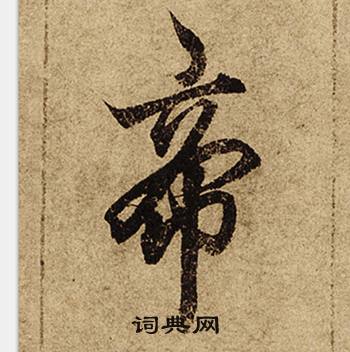 帝
词典网